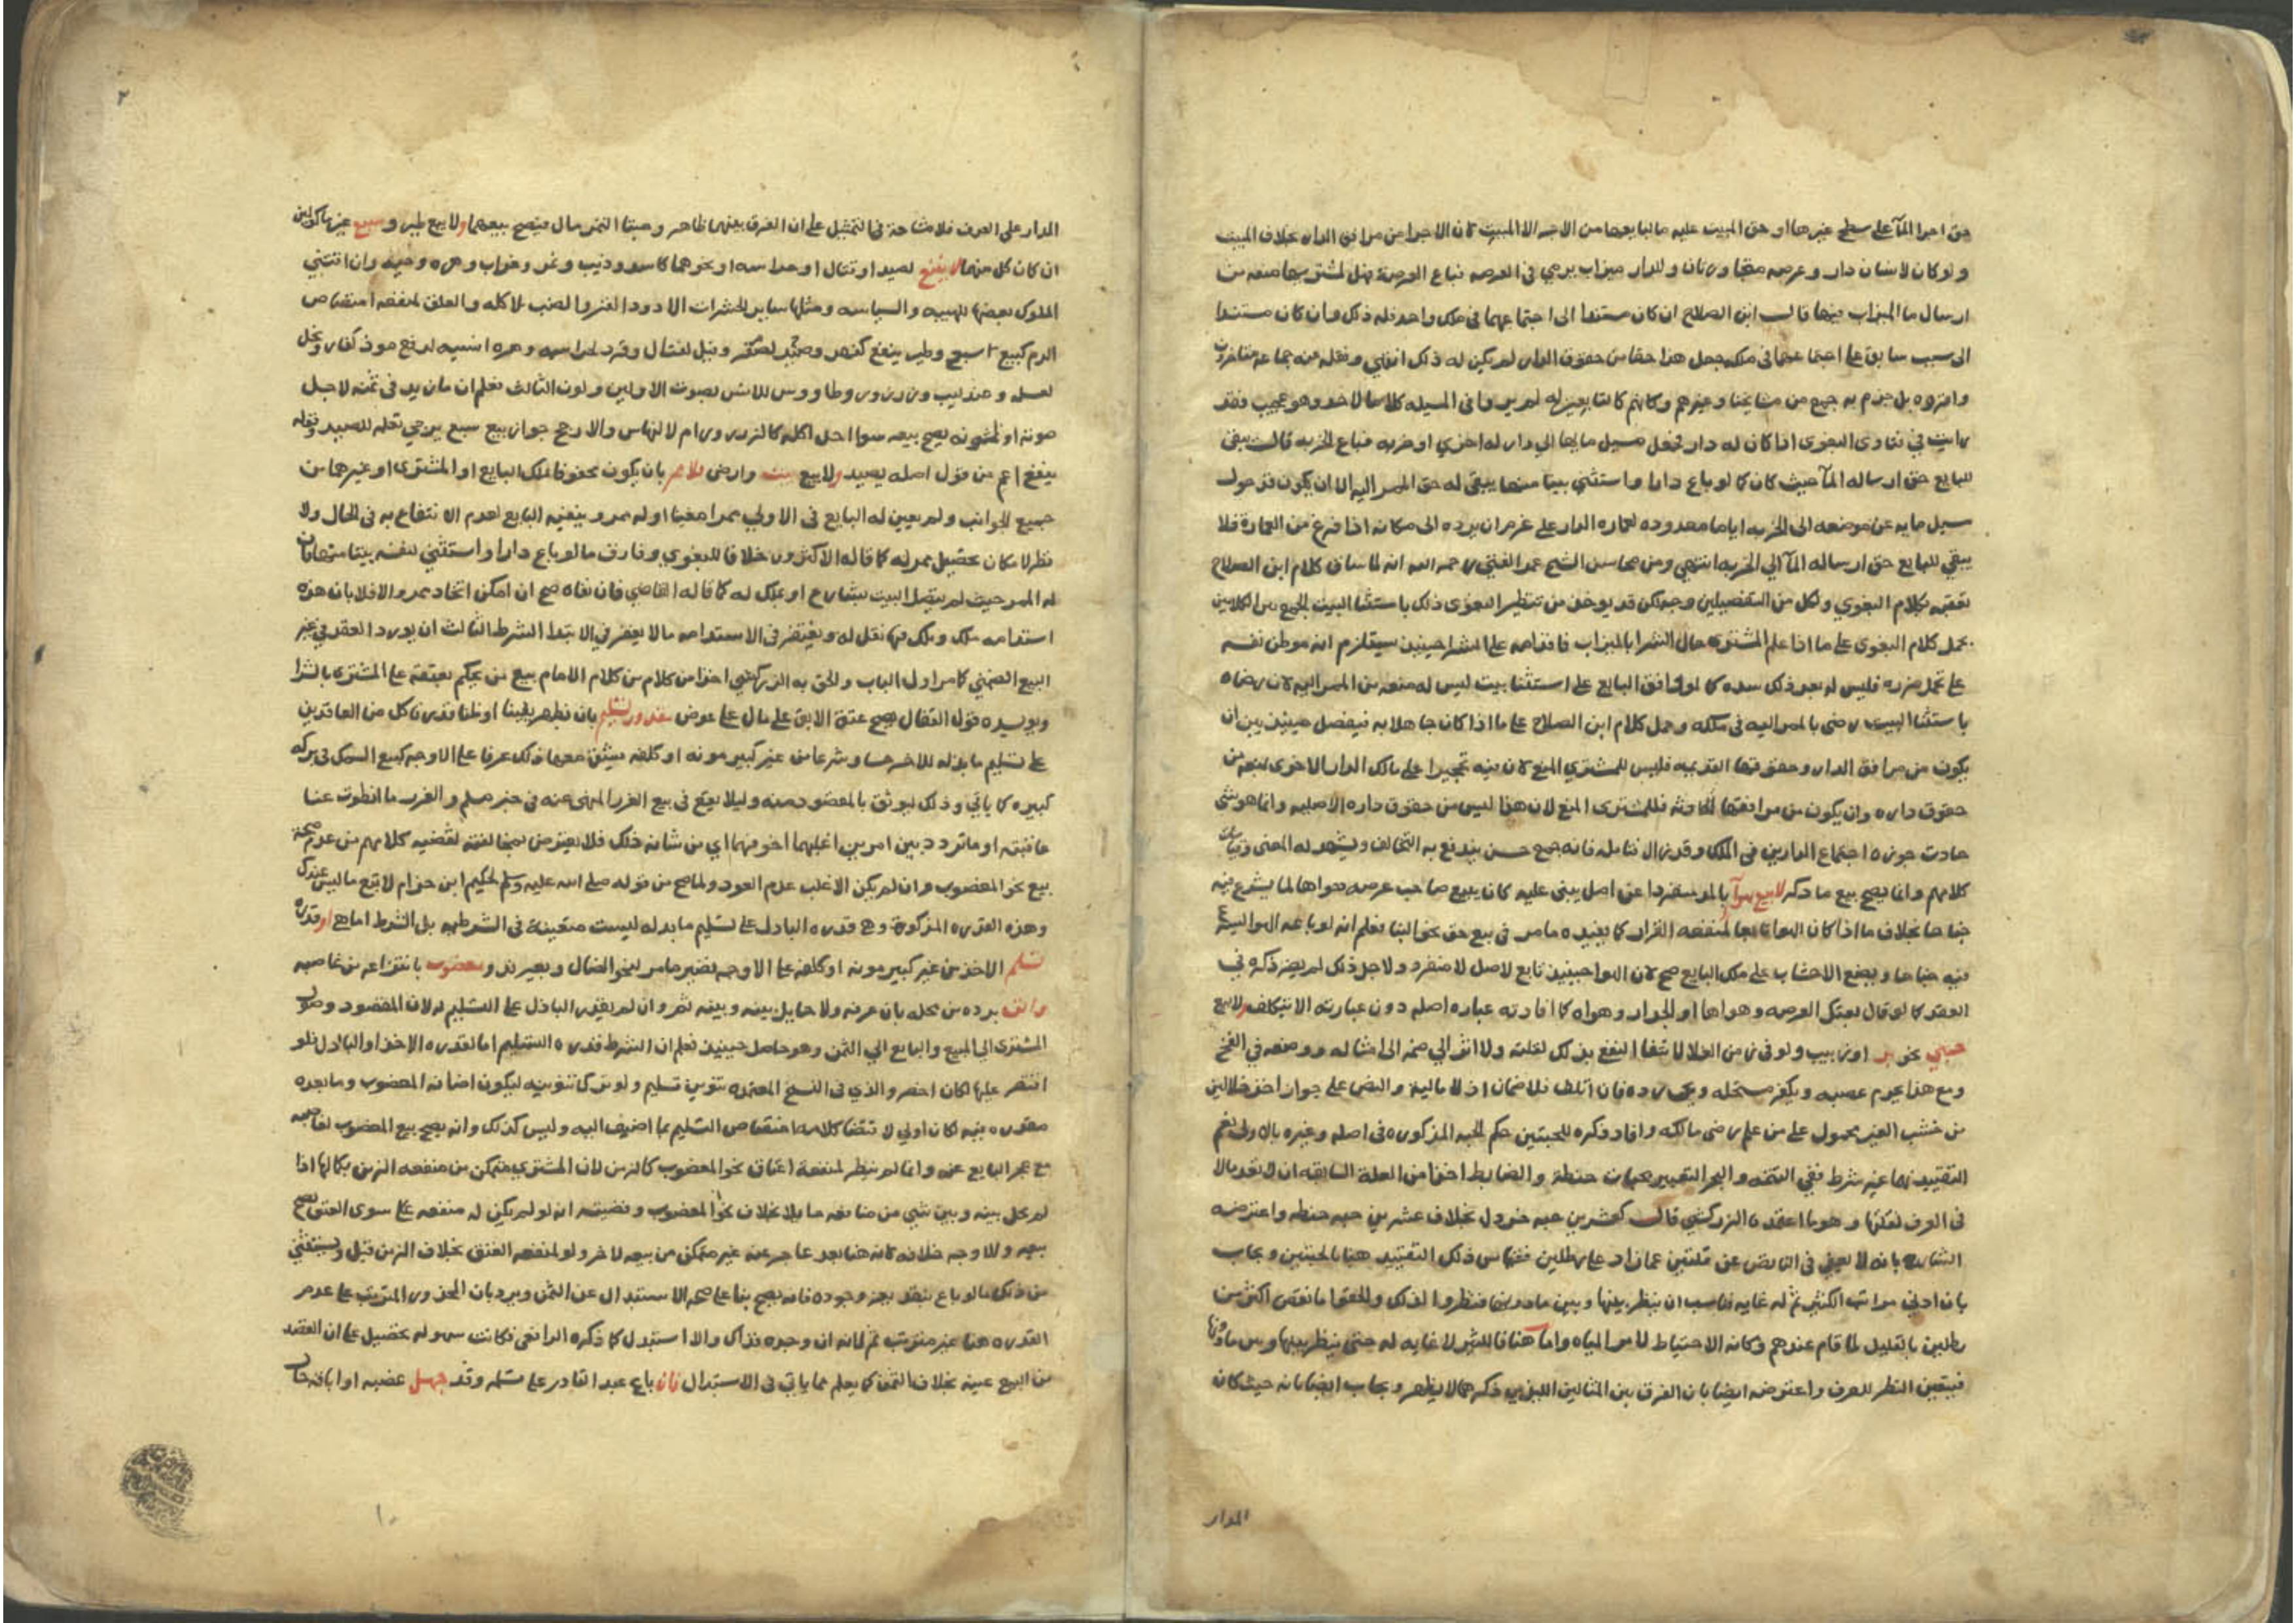 حق اجرا المآ على سطح غيرها او حق المبيت عليه ما لبايعها من الاجرا لا المبيت لان الاجرا من مرافق الدار بخلاف المبيت
ولو كان لانسان دار وعرصه وللدار ميزاب يرمي في العرصه فباع العرصة فهل لمشتريها منعه من
ارسال ما الميزاب فيها قال ابن الصلاح ان كان مستندا الى اجتماعهما في ملك واحد فله ذلك وان كان مستندا
الى سبب سابق على اجتماعهما في ملكه جعل هذا حقا من حقوق الدار لم يكن له ذلك انتهي ونقله عنه جماعة متاخرون
واقروه بل جزم به جمع من مشايخنا وغيرهم وكانهم لم يروا في المسيله كلاما لاحد وهو عجيب فقد
رايت في فتاوى البغوى اذا كان له دار تجعل مسيل مايها الي دار له اخري او خربه فباع الخربه قال يبقى
للبايع حق ارساله المآ حيث كان كما لو باع دارا واستثني بيتا منها يبقى له حق الممر اليه الا ان يكون قد حول
سيل مايه عن موضعه الى الخربه اياما معدوده لعماره الدار على عزم ان يرده الى مكانه اذا فرغ من العمارة فلا
يبقي للبايع حق ارساله المآ الي الخربه انتهي ومن محاسن الشيخ عبد الغني رحمه الله انه لما ساق كلام ابن الصلاح
تعقبه بكلام البغوي ولكل من التفصيلين وجه لكن قد يوخذ من تنظير البغوى ذلك باستثنا البيت الجمع بين الكلامين
بحمل كلام البغوى على ما اذا علم المشتري حال الشرا بالميزاب فاقدامه على الشرا حينيذ يستلزم انه موطن نفسه
على تحمل ضرره فليس له بعد ذلك سده كما لو وافق البايع على استثنا بيت ليس له منعه من الممر اليه لان رضاه
باستثنا البيت رضى بالممر اليه في ملكه وحمل كلام ابن الصلاح على ما اذا كان جاهلا به فيفصل حينيذ بين ان
يكون من مرافق الدار وحقوقها القديمه فليس للمشتري المنع لان فيه تحجيرا على مالك الدار الاخرى بمنعه من
حقوق داره وان يكون من مرافقها الحادثه فللمشتري المنع لان هذا ليس من حقوق داره الاصليه وانما هو شي
حادث جوزه اجتماع الدارين في الملك وقد زال فانه جمع حسن يندفع به التخالف ويشهد له المعنى وقياس
كلامهم وانما يصح بيع ما ذكر لا بيع هوآ بالمد منفردا عن اصل يبنى عليه كان يبيع صاحب عرصه هواها لمن يشرع فيه
جناحا بخلاف ما اذا كان الهوا تابعا لمنفعه القرار كما يفيده ما مر في بيع حق نحو البنا فعلم انه لو باعه الهوا ليشرع
فيه جناحا ويضع الاخشاب على ملك البايع صح لان الهوا حينيذ تابع لاصل لا منفرد ولاجل ذلك لم يضر ذكره في
العقد كما لو قال بعتك العرصه وهواها او الجدار وهواه كما افادته عباره اصله دون عبارته الا بتكلف ولا بيع
حبتي نحو بر او زبيب ولو في زمن الغلا لانتفا النفع بذلك لقلته ولا اثر الي ضمه الى امثاله ووضعه في الفخ
ومع هذا يحرم غصبه ويكفر مستحله ويجب رده فان اتلف فلا ضمان اذ لا ماليه والنص على جواز اخذ خلالين
من خشب الغير محمول على من علم رضى مالكه وافاد ذكره للحبتين حكم الحبه المذكوره في اصله وغيره بالاولى نعم
التقييد بهما غير شرط ففي التتمه والبحر التعبير بحبات حنطة والضابط اخذا من العلة السابقه ان لا يعد مالا
في العرف لقلتها وهو ما اعتمده الزركشي قال كعشرين حبه خردل بخلاف عشرين حبه حنطه واعترضه
الشارح بانه لا يعفي في الناقص عن قلتين عما زاد على رطلين فقياس ذلك التقييد هنا بالحبتين ويجاب
بان ادني مراتب الكثير ثم له غايه فناسب ان ينظر بينها وبين ما دونها فنظروا لذلك والحقوا ما نقص اكثر من
رطلين بالقليل لما قام عندهم وكانه الاحتياط لامر المياه واما هنا فالكثير لا غايه له حتى ينظر بينها وبين ما دونها
فيتعين النظر للعرف واعترضه ايضا بان الفرق بين المثالين اللذين ذكرهما لا يظهر ويجاب ايضا بانه حيث كان
المدار
٢
المدار على العرف فلا مشاحة في التمثيل على ان الفرق بينهما ظاهر وحبتا التمر مال فيصح بيعهما ولا بيع طير وسبع غير ماكولين
ان كان كل منهما لا ينفع لصيد او قتال او حراسه او نحوها كاسد وذيب ونمر وغراب وحداه وحيه وان اقتني
الملوك بعضها للهيبه والسياسه ومثلها ساير الحشرات الا دود القز والضب لاكله والعلق لمنفعه امتصاص
الدم كبيع سبع وطير ينفع كفهد وصيد لصقر وفيل لقتال وقرد لحراسه وهره انسيه لدفع موذ كفار ونحل
لعسل وعندليب وزرزور وطاووس للانس بصوت الاولين ولون الثالث فعلم ان ما زيد في ثمنه لاجل
صوته او لونه يصح بيعه سوا احل اكله كالزرزور ام لا والارجح جواز بيع سبع يرجي تعلمه للصيد وقوله
ينفع اعم من قول اصله يصيد ولا بيع بيت وارض بلا ممر بان يكون محفوفا بملك البايع او المشترى او غيرهما من
جميع الجوانب ولم يعين له البايع في الاولي ممرا معينا او له ممر وينفيه البايع لعدم الانتفاع به في الحال ولا
نظر لامكان تحصيل ممر له كما قاله الاكثرون خلافا للبغوي وفارق ما لو باع دارا واستثني لنفسه بيتا منها فان
له الممر حيث لم يتصل البيت بشارع او بملك له كما قاله القاضي فان نفاه صح ان امكن اتخاذ ممر والا فلا بان هذه
استدامه ملك وملك فيها نقل له ويغتفر في الاستدامه ما لا يغتفر في الابتدا الشرط الثالث ان يورد العقد في غير
البيع الضمني كما مر اول الباب والحق به الزركشي اخذا من كلام الامام بيع من يحكم بعتقه على المشتري بالشرا
ويويده قول القفال يصح عتق الابق على مال على عوض مقدور تسليم بان يظهر يقينا او ظنا قدرة كل من العاقدين
على تسليم ما بذله للاخر حسا وشرعا من غير كبير مونه او كلفه عرفا على الاوجه كبيع السمك في بركه
كبيره كما ياتي وذلك ليوثق بالمقصود منه وليلا يقع في بيع الغرر المنهى عنه في خبر مسلم والغرر ما انطوت عنا
عاقبته او ما تردد بين امرين اغلبهما اخوفهما اي من شانه ذلك فلا يعترض بمخالفته لقضيه كلامهم من عدم صحة
بيع نحو المغصوب وان لم يكن الاغلب عدم العود ولما صح من قوله صلى الله عليه وسلم لحكيم ابن حزام لا تبع ما ليس عندك
وهذه القدره المذكورة وهي قدره الباذل على تسليم ما بذله ليست متعينة في الشرطيه بل الشرط اما هي او قدرة
تسلم الاخذ من غير كبير مونه او كلفه على الاوجه نظير ما مر في نحو الضال وبعير ند ومغصوب بانتزاعه من غاصبه
وابق برده من محله بان عرفه ولا حايل بينه وبينه ثمر وان لم يقدر الباذل على التسليم له لان المقصود وصول
المشترى الى المبيع والبايع الي الثمن وهو حاصل حينيذ فعلم ان الشرط قدره التسليم اما لقدره الاخذ او الباذل فلو
اقتصر عليها لكان اخصر والذي في النسخ المعتمده تنوين تسليم ولو ترك تنوينه ليكون اضافه المغصوب وما بعده
مقدره فيه لكان اولي لاقتضا كلامه اختصاص التسليم بما اضيف اليه وليس كذلك وانه يصح بيع المغصوب لغاصبه
مع عجز البايع عنه وانما لم ينظر لمنفعة اعتاق نحو المغصوب كالزمن لان المشتري متمكن من منفعه الزمن بكمالها اذا
لم يحل بينه وبين شي من منافعه حايل بخلاف نحو المغصوب وقضيته انه لو لم يكن له منفعه على سوى العتق صح
بيعه والاوجه خلافه لانه هنا يعد عاجزا عنه غير متمكن من بيعه لاخر ولو لمنفعه العتق بخلاف الزمن قيل ويستثني
من ذلك ما لو باع بنقد يعز وجوده فانه يصح بنا على صحه الاستبدال عن الثمن ويرد بان المحذور المترتب على عدم
القدره هنا غير مترتب ثم لانه ان وجده فذاك والا استبدل كما ذكره الرافعي فكانت سهوله تحصيل على ان العقد
من البيع عينه بخلاف الثمن كما يعلم مما ياتي في الاستبدال فان باع عبدا لقادر على تسلمه وقد جهل غصبه او اباقه حال
١٠